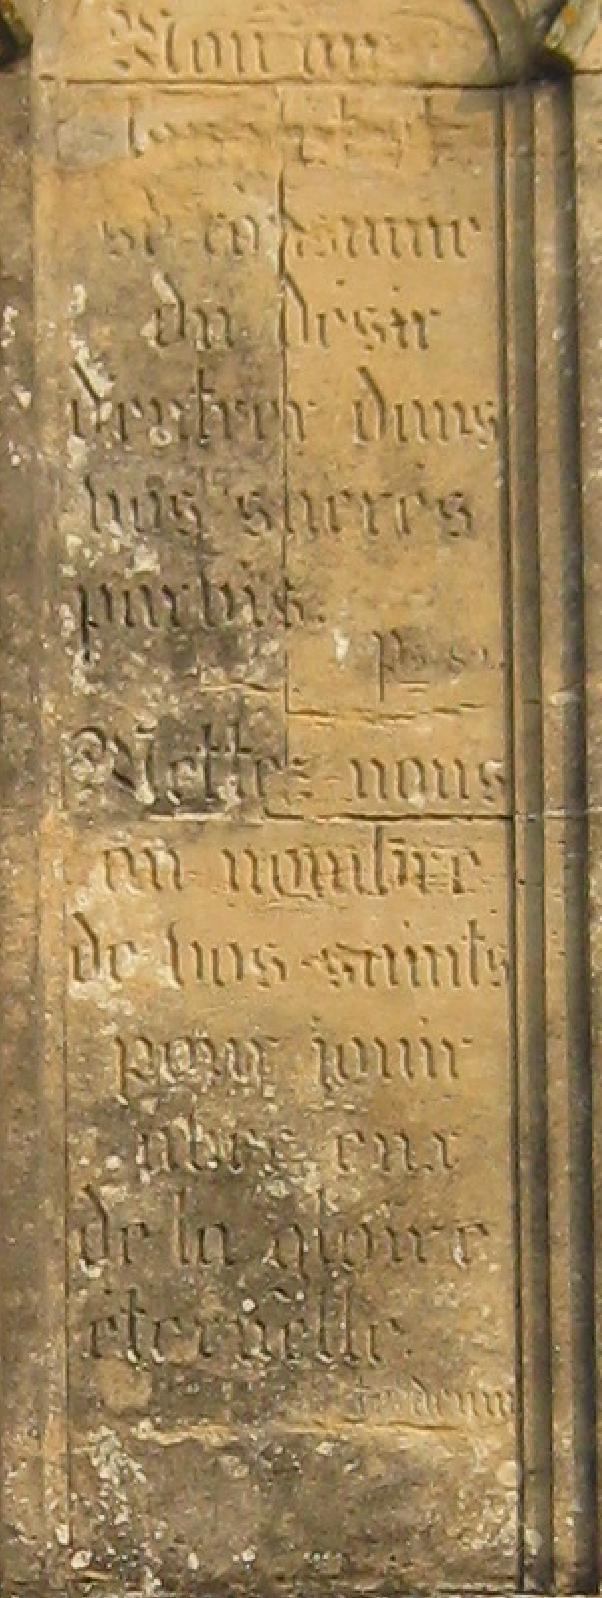 Mon âme
languit et
se consume
du désir
d'entrer dans
vos sacrés
parvis.
Ps 83.
Mettez-nous
au nombre
de vos saints
pour jouir
avec eux
de la gloire
éternelle.
te deum